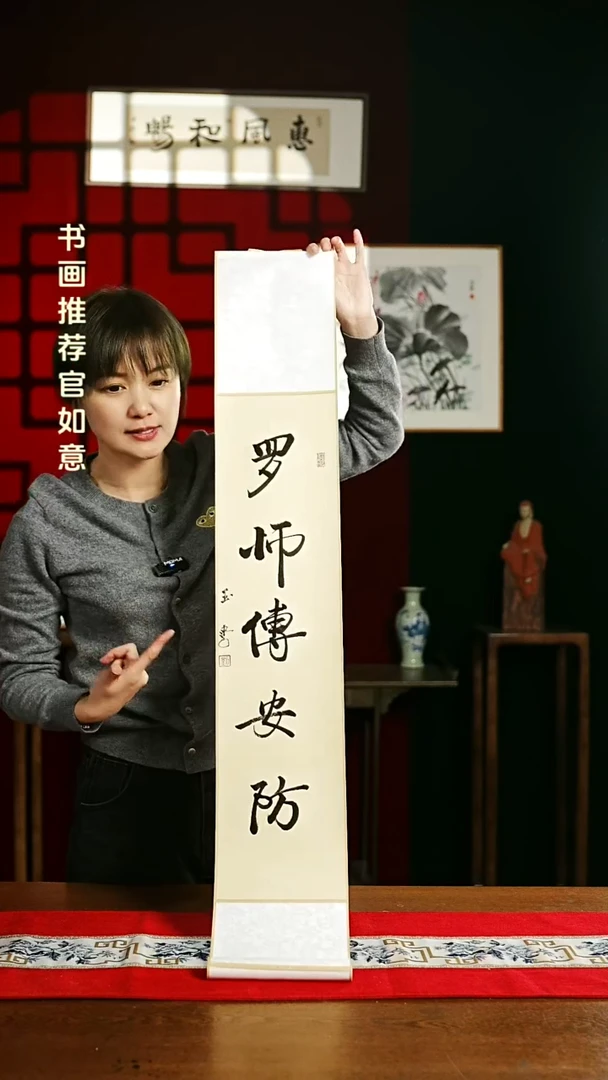 惠風和暢
书画推荐官如意
罗师傅安防